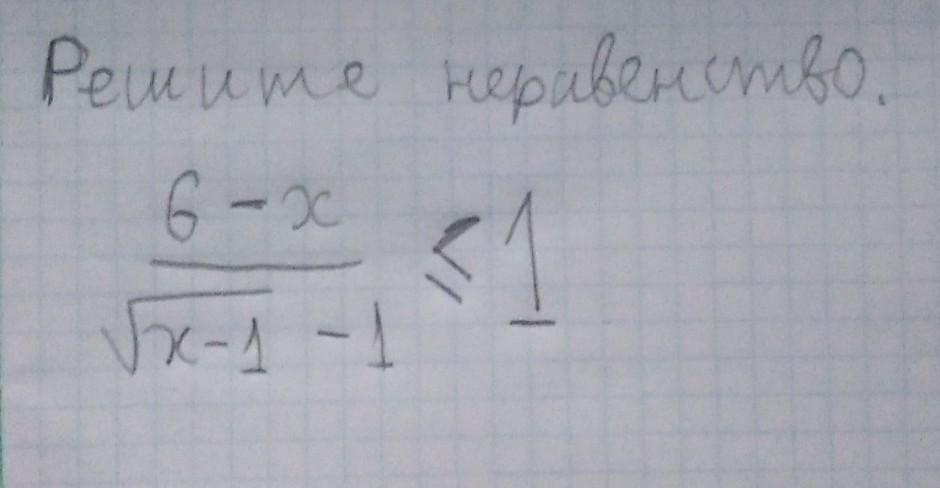 Решите неравенство.
6 - x
√x-1 - 1 ≤ 1